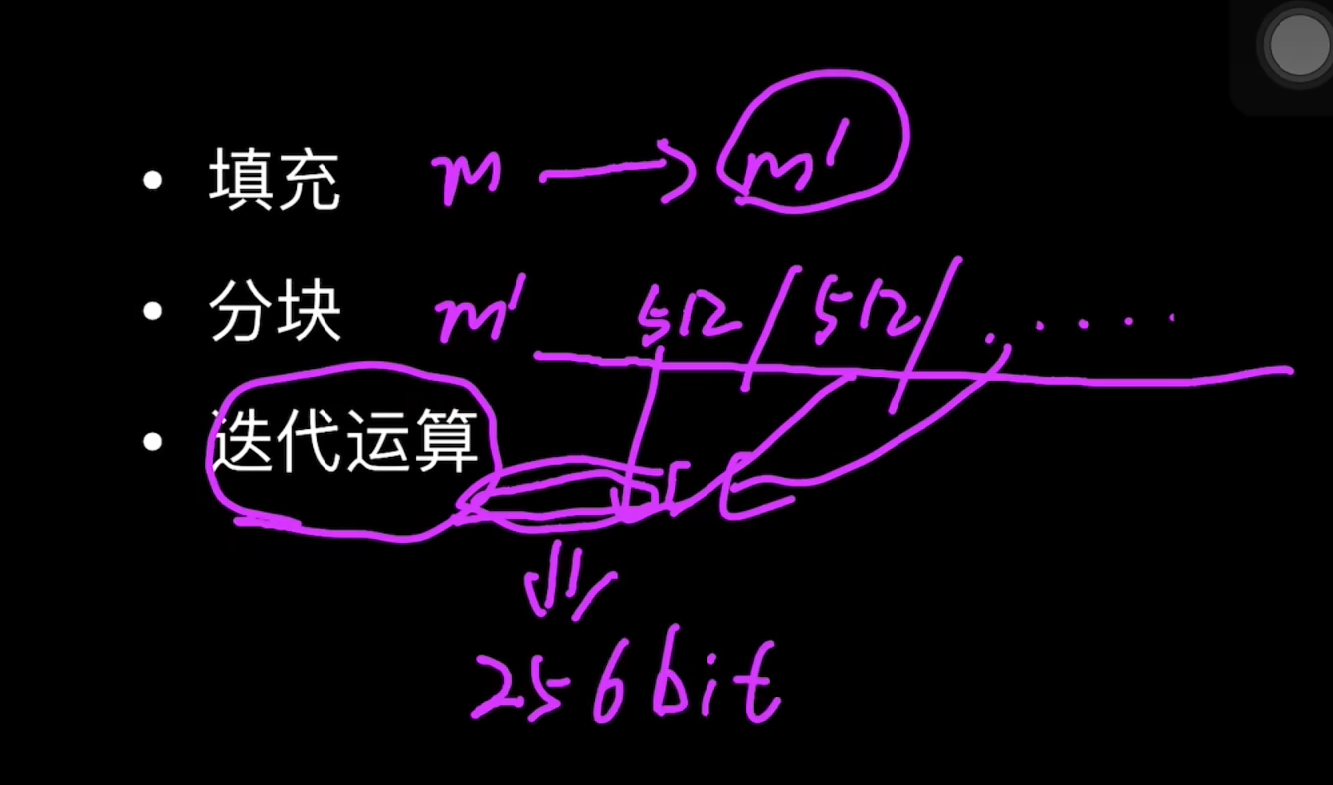 • 填充 m → m'
• 分块 m' 512 / 512 / ......
• 迭代运算
256bit